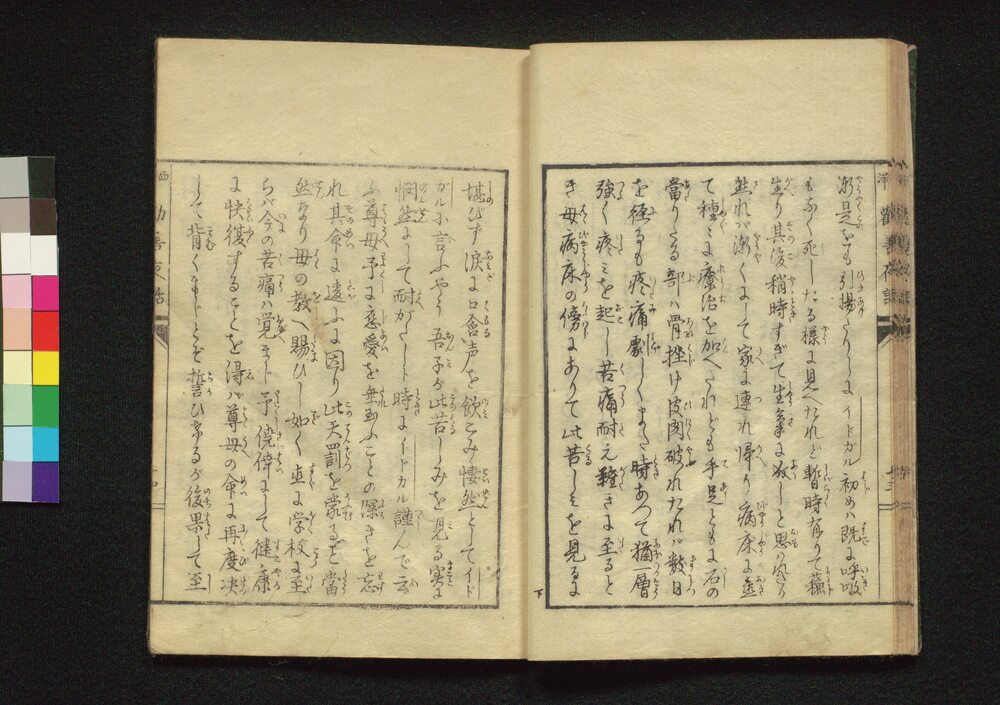 漸是をも引揚たりしにイドガル初めハ既に呼吸
もなく死したる様に見へたれど暫時有りて蘇
生り其後稍時すぎて生氣に放しと思のれたり
然れバ漸くにして家に連れ帰り病床に
て種々に療治を加へたれども手足ともに石の
當りたる部ハ骨挫け皮肉破れたれバ数日
を径るも疼痛劇しくまた時あつて猶一層
強く疼ミを起し苦痛耐え難きに至ると
き母病床の傍にありて此苦しミを見るに
堪びず涙に口含声を飲こみ悽然としてイド
ガル小言ふやう吾子が此苦しみを見る実に
惘然にして耐がたしト時にイドガル謹んで云
ふ尊母予に慈愛を垂玉ふことの深きを忘
れ其命に違ふに因り此天罰を蒙ること當
然なり母の教へ賜ひし如く直に学校に至
らバ今の苦痛ハ覚まじ予僥倖にして健康
に快復することを得バ尊母の命に再度决
して背くまじとぞ誓ひけるが後果して至